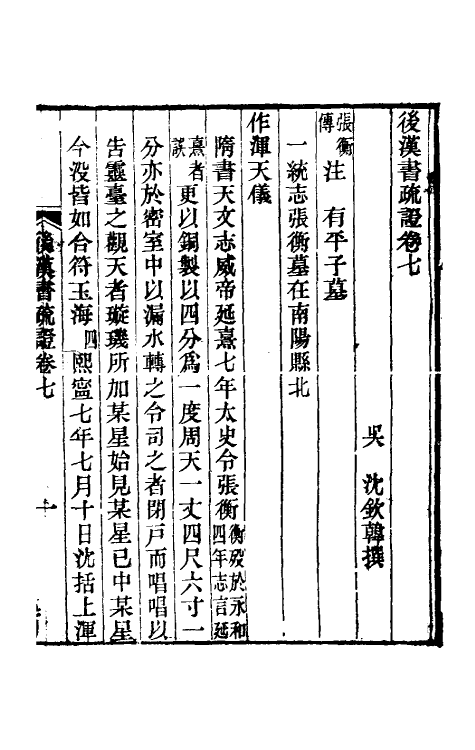 後漢書疏證卷七
吳　沈欽韓撰
張衡傳　注　有平子墓
一統志張衡墓在南陽縣北
作渾天儀
隋書天文志威帝延熹七年太史令張衡衡歿於永和四年志言延
熹者誤更以銅製以四分爲一度周天一丈四尺六寸一
分亦於密室中以漏水轉之令司之者閉戸而唱唱以
告靈臺之觀天者璇璣所加某星始見某星已中某星
今没皆如合符玉海四熙寧七年七月十日沈括上渾
後漢書疏證卷七
一